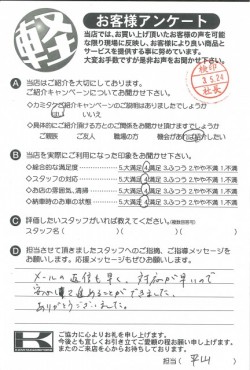 軽
お客様アンケート
当店では、お買い上げ頂いたお客様の声を可能
な限り現場に反映し、お客様により良い商品と
サービスを提供する事に努めています。
大変お手数ですが是非お声をお聞かせ下さい。
検印
3.5.24
社長
A 当店はご紹介を大切にしております。
ご紹介キャンペーンについてお聞かせ下さい。
◇カミタケご紹介キャンペーンのご説明はありましたでしょうか
はい いいえ
◇具体的にご紹介頂ける方とのご関係をお聞かせ頂けますでしょうか
ご親族 ご友人 職場の方 機会があれば紹介したい
B 当店を実際にご利用になった印象をお聞かせ下さい。
◇総合的な満足度 5.大満足 4.満足 3.ふつう 2.やや不満 1.不満
◇スタッフの対応 5.大満足 4.満足 3.ふつう 2.やや不満 1.不満
◇お店の雰囲気、清掃 5.大満足 4.満足 3.ふつう 2.やや不満 1.不満
◇納車時のお車の状態 5.大満足 4.満足 3.ふつう 2.やや不満 1.不満
C 評価したいスタッフがいれば教えてください。(複数回答可)
スタッフ名( )( )( )
D 担当させて頂きましたスタッフへのご指摘、ご指導メッセージを
お願いします。応援メッセージもぜひお願いします。
メールの返信も早く、対応が早いので
安心して進めることができました。
ありがとうございました。
K
ご協力に心よりお礼を申し上げます。
今後とも宜しくお引き立てご愛顧の程お願い申し上げます。
またのご来店を心からお待ちしております。
担当 平山